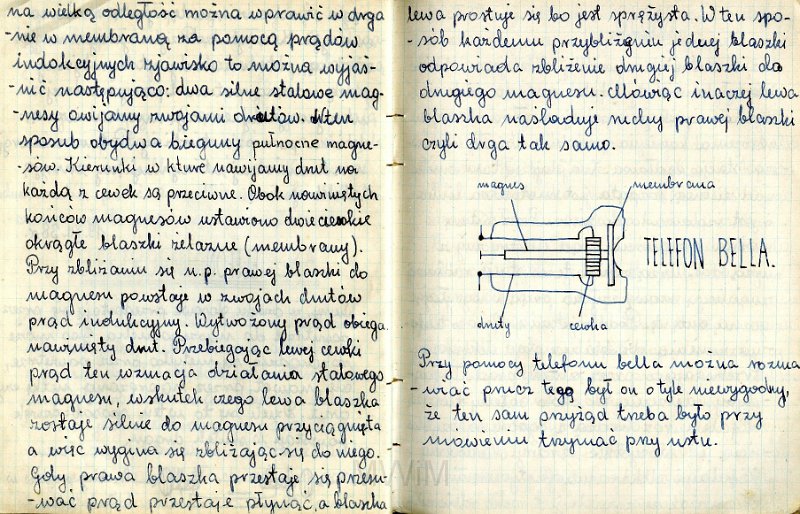 na wielką odległość można wprawić w drga
-nie w membraną za pomocą prądów
indokcyjnych zjawisko to można wyjaś-
-nić następująco: dwa silne stalowe mag-
-nesy owijamy zwojami drutów. W ten
sposub obydwa bieguny pułnocne magne-
-sów. Kierunki w kture nawijamy drut na
każdą z cewek są przeciwne. Obok nawiniętych
końców magnesów ustawiono dwie cienkie
okrągłe blaszki żelazne (membrany).
Przy zbliżaniu się n.p. prawej blaszki do
magnesu powstaje w zwojach drutów
prąd indukcyjny. Wytwożony prąd obiega
nawinięty drut. Przebiegając lewej cewki
prąd ten wzmacja działania stalowego
magnesu, wskutek czego lewa blaszka
zostaje silnie do magnesu przyciągnięta
a więc wygina się zbliżając się do niego.
Gdy prawa blaszka przestaje się przesu-
-wać prąd przestaje płynąć, a blaszka
lewa prostuje się bo jest sprężysta. W ten spo-
-sób każdemu przybliżeniu jednej blaszki
odpowiada zbliżenie drugiej blaszki do
drugiego magnesu. Mówiąc inaczej lewa
blaszka naśladuje ruchy prawej blaszki
czyli drga tak samo.
magnes
membrana
TELEFON BELLA.
druty
cewka
Przy pomocy telefonu bella można rozma
-wiać prucz tego był on o tyle niewygodny,
że ten sam przyżąd trzeba było przy
mówieniu trzymać przy ustu.
MWiM